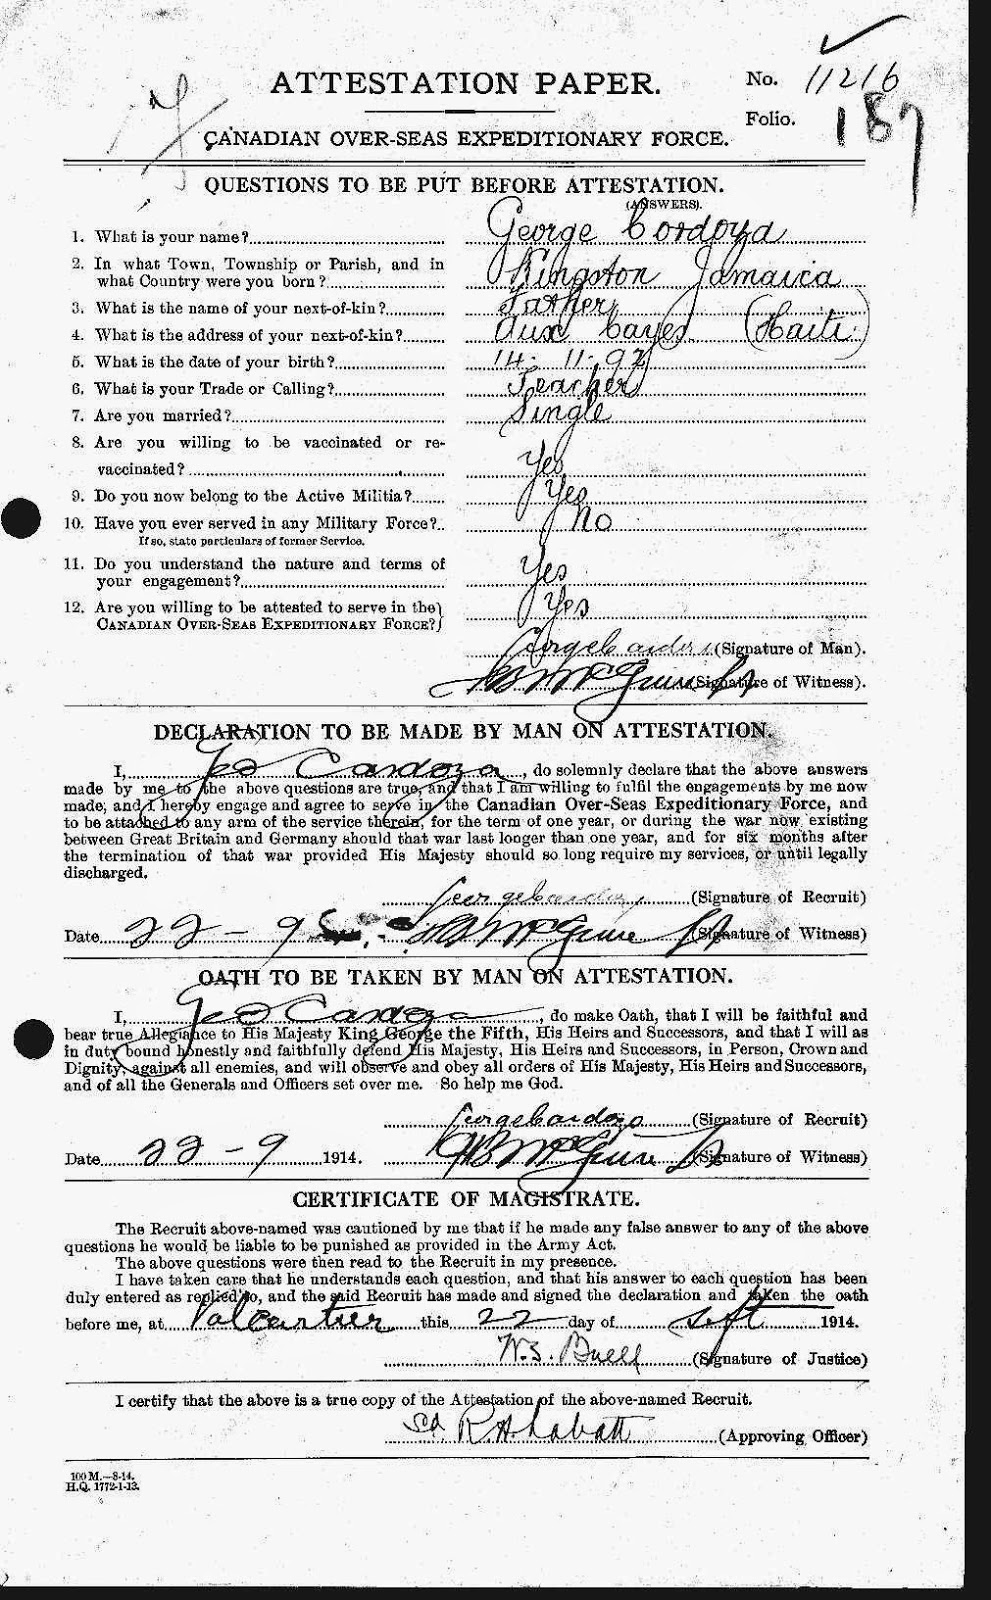 No. 11216
ATTESTATION PAPER.
Folio. 187
CANADIAN OVER-SEAS EXPEDITIONARY FORCE.
QUESTIONS TO BE PUT BEFORE ATTESTATION.
(ANSWERS).
1. What is your name? George Cordoza
2. In what Town, Township or Parish, and in
what Country were you born? Kingston Jamaica
3. What is the name of your next-of-kin? Father
4. What is the address of your next-of-kin? Aux Cayes. (Haiti)
5. What is the date of your birth? 14-11-92
6. What is your Trade or Calling? Teacher
7. Are you married? Single
8. Are you willing to be vaccinated or re-
vaccinated? Yes
9. Do you now belong to the Active Militia? Yes
10. Have you ever served in any Military Force? No
If so, state particulars of former Service.
11. Do you understand the nature and terms of
your engagement? Yes
12. Are you willing to be attested to serve in the
CANADIAN OVER-SEAS EXPEDITIONARY FORCE? Yes
(Signature of Man).
McGuire (Signature of Witness).
DECLARATION TO BE MADE BY MAN ON ATTESTATION.
I, Geo Cardoza, do solemnly declare that the above answers
made by me to the above questions are true, and that I am willing to fulfil the engagements by me now
made, and I hereby engage and agree to serve in the Canadian Over-Seas Expeditionary Force, and
to be attached to any arm of the service therein, for the term of one year, or during the war now existing
between Great Britain and Germany should that war last longer than one year, and for six months after
the termination of that war provided His Majesty should so long require my services, or until legally
discharged.
George Cardoza (Signature of Recruit)
Date 22 - 9 McGuire (Signature of Witness)
OATH TO BE TAKEN BY MAN ON ATTESTATION.
I, Geo Cardoza, do make Oath, that I will be faithful and
bear true Allegiance to His Majesty King George the Fifth, His Heirs and Successors, and that I will as
in duty bound honestly and faithfully defend His Majesty, His Heirs and Successors, in Person, Crown and
Dignity, against all enemies, and will observe and obey all orders of His Majesty, His Heirs and Successors,
and of all the Generals and Officers set over me. So help me God.
George Cardozo (Signature of Recruit)
Date 22 - 9 1914. McGuire (Signature of Witness)
CERTIFICATE OF MAGISTRATE.
The Recruit above-named was cautioned by me that if he made any false answer to any of the above
questions he would be liable to be punished as provided in the Army Act.
The above questions were then read to the Recruit in my presence.
I have taken care that he understands each question, and that his answer to each question has been
duly entered as replied to, and the said Recruit has made and signed the declaration and taken the oath
before me, at Valcartier this 22 day of Sept 1914.
W.S. Buell (Signature of Justice)
I certify that the above is a true copy of the Attestation of the above-named Recruit.
Sd. R.H. Labatt (Approving Officer)
100 M.—8-14.
H.Q. 1772-1-13.